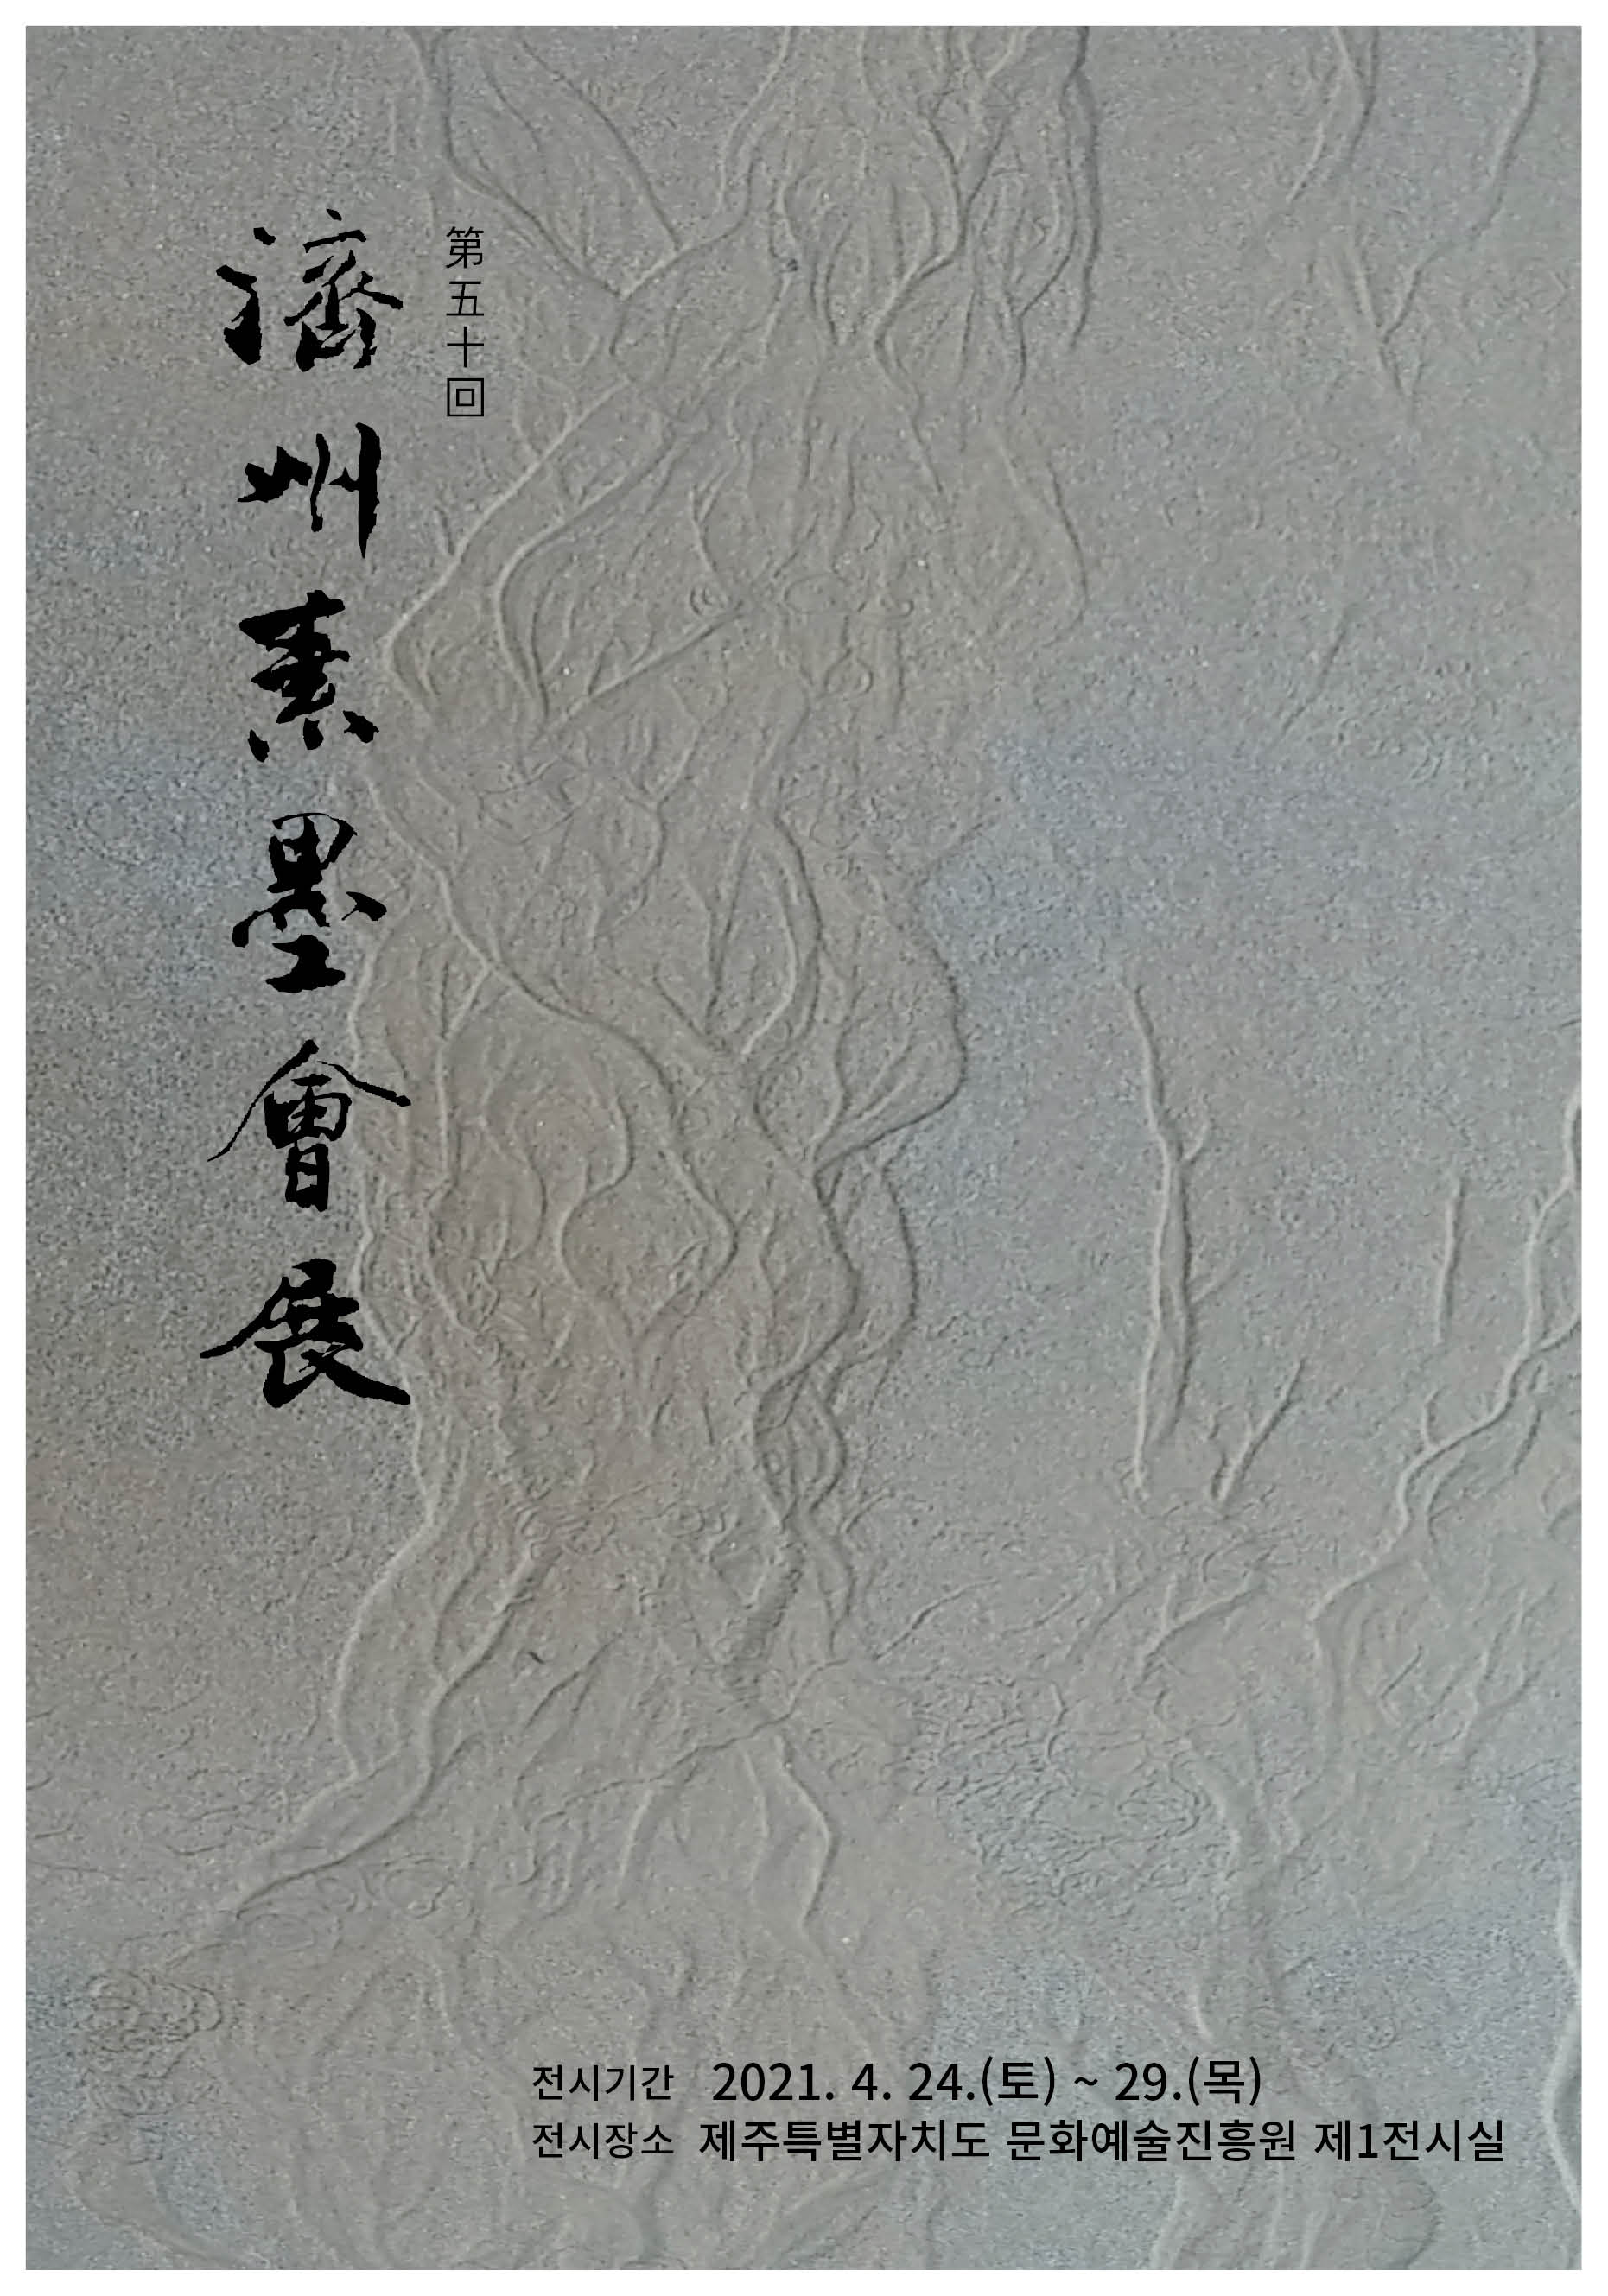 第五十回
濟州素墨會展
전시기간 2021. 4. 24.(토) ~ 29.(목)
전시장소 제주특별자치도 문화예술진흥원 제1전시실